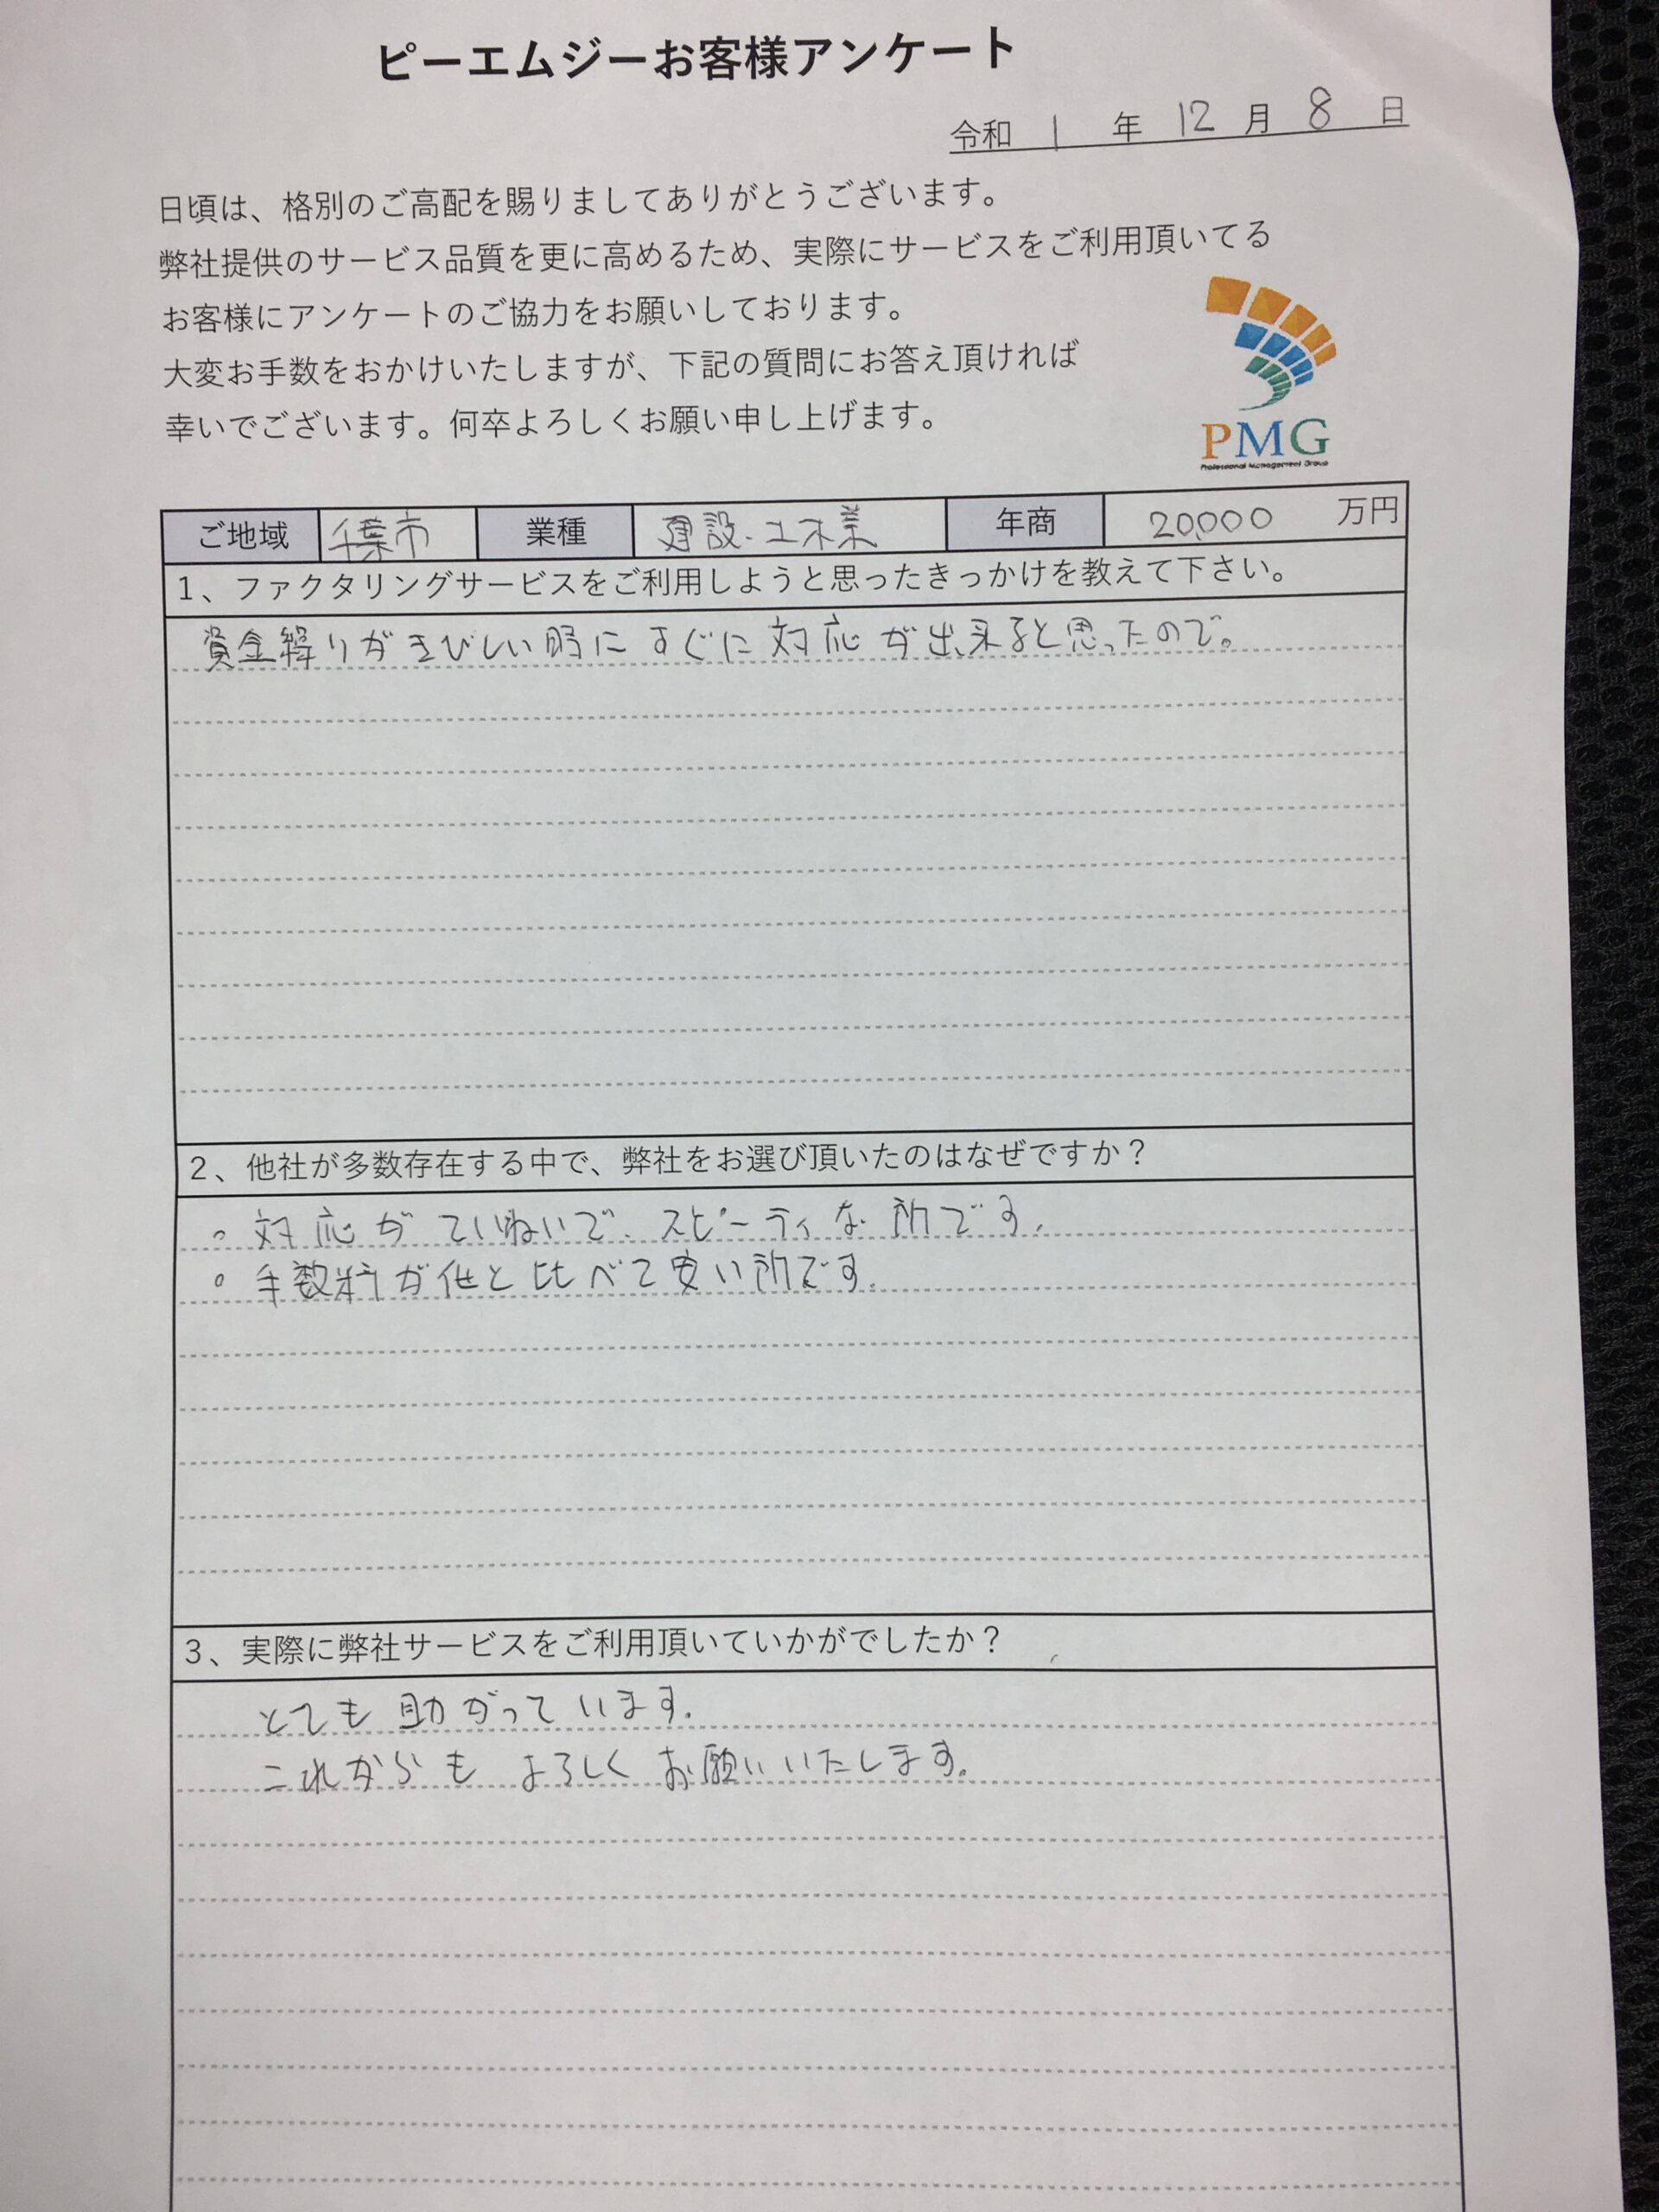 ピーエムジーお客様アンケート
令和 1 年 12 月 8 日
日頃は、格別のご高配を賜りましてありがとうございます。
弊社提供のサービス品質を更に高めるため、実際にサービスをご利用頂いてる
お客様にアンケートのご協力をお願いしております。
大変お手数をおかけいたしますが、下記の質問にお答え頂ければ
幸いでございます。何卒よろしくお願い申し上げます。
PMG
Professional Management Group
ご地域 千葉市 業種 建設・土木業 年商 20,000 万円
1、ファクタリングサービスをご利用しようと思ったきっかけを教えて下さい。
資金繰りがきびしい時にすぐに対応が出来ると思ったので。
2、他社が多数存在する中で、弊社をお選び頂いたのはなぜですか？
。対応がていねいで、スピーディな所です。
。手数料が他と比べて安い所です。
3、実際に弊社サービスをご利用頂いていかがでしたか？
とても助がっています。
これからもよろしくお願いいたします。